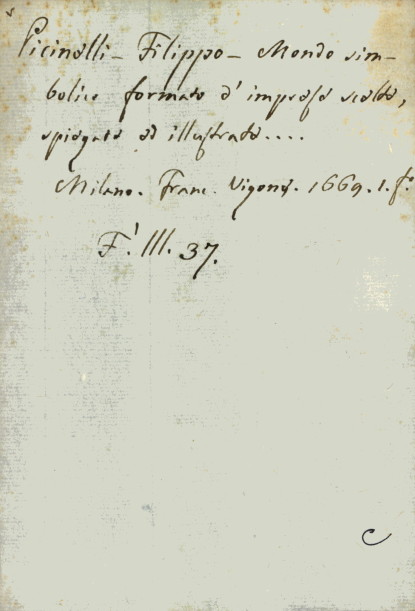 Picinelli - Filippo - Mondo sim-
bolico formato d'imprese scelte,
spiegate ed illustrate....
Milano. Franc. Vigone. 1669. 1. f.º
F. III. 37.
C